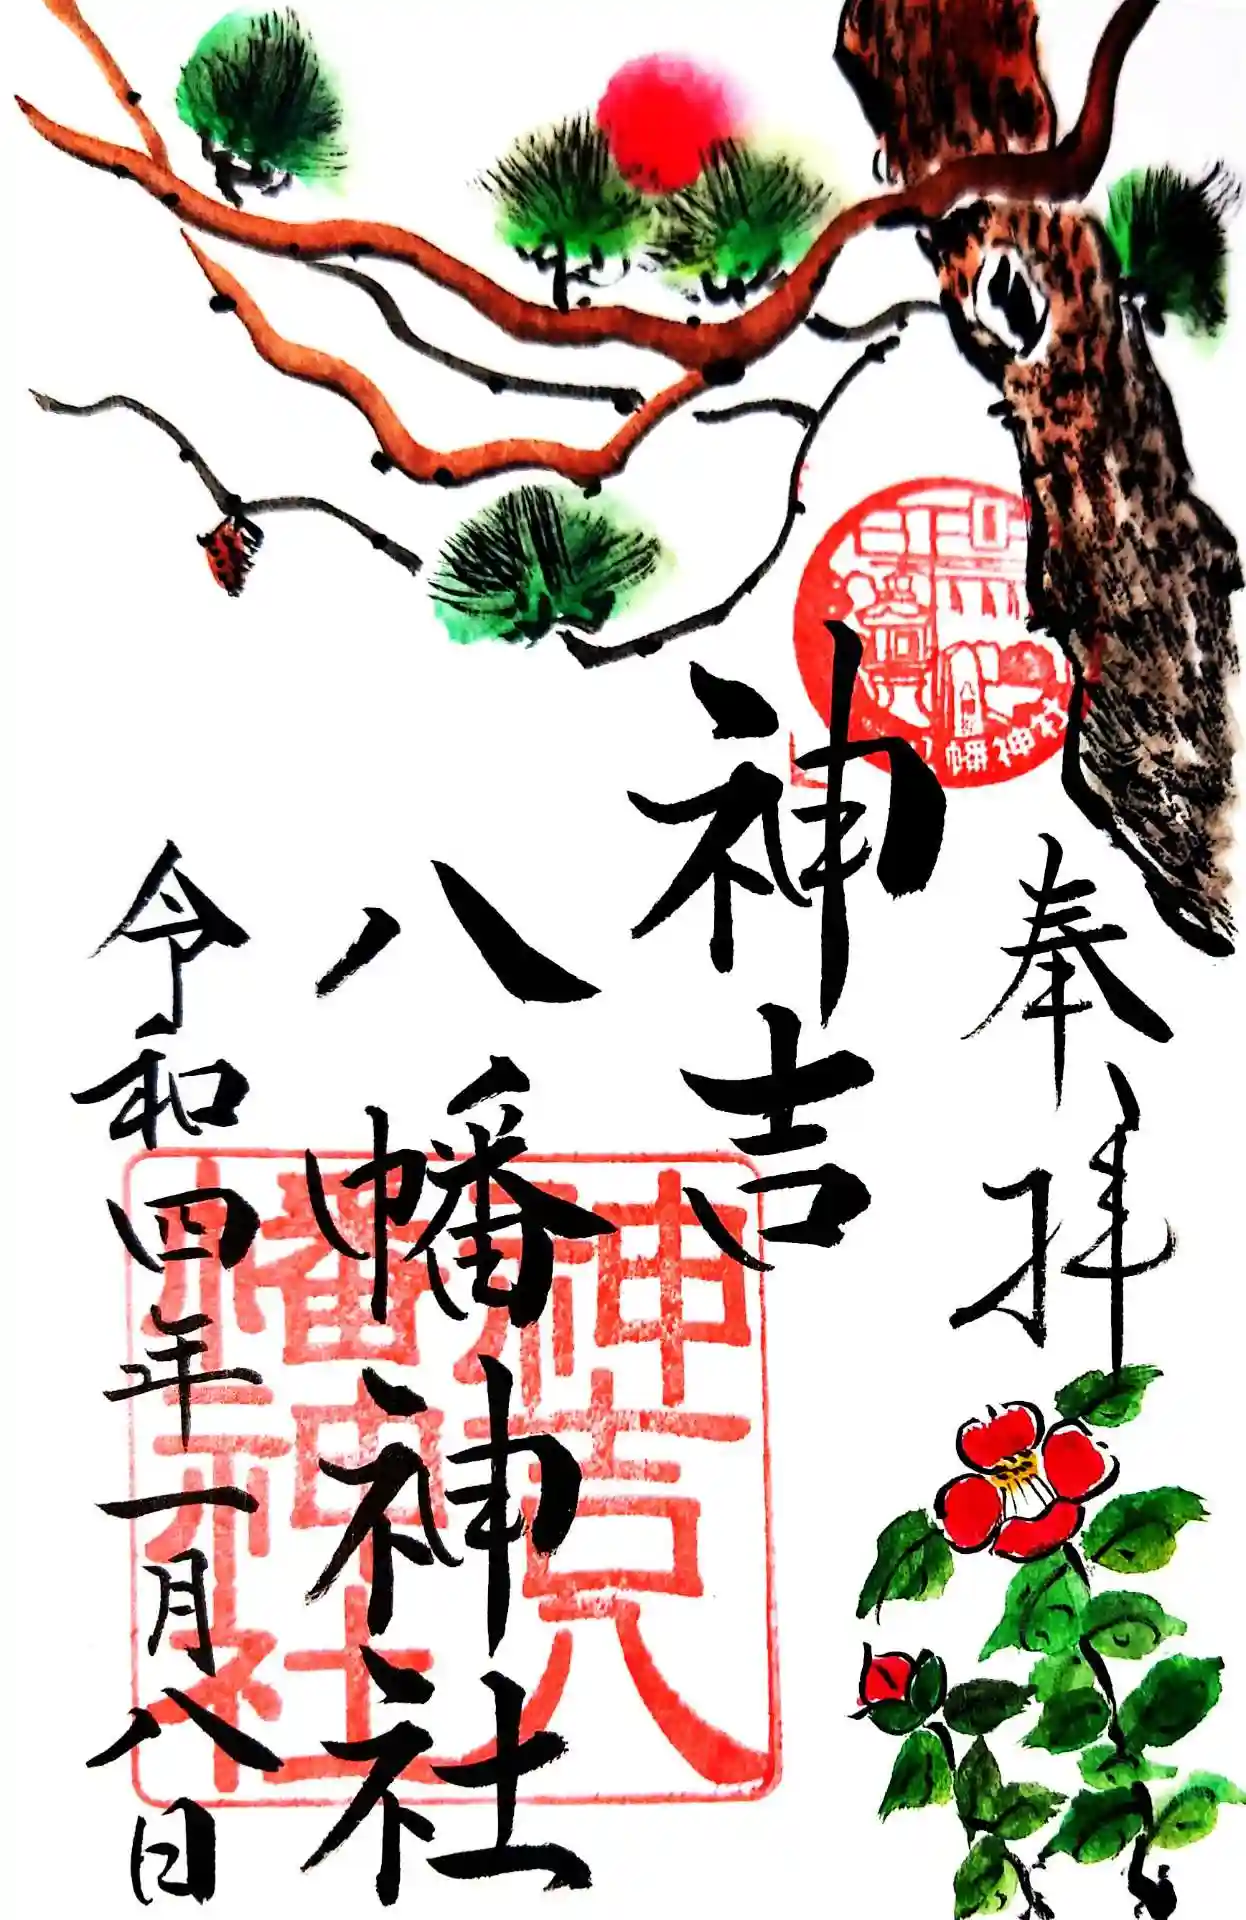 奉拝
神吉
八幡神社
令和四年一月八日
幡神社
神吉八
幡神社